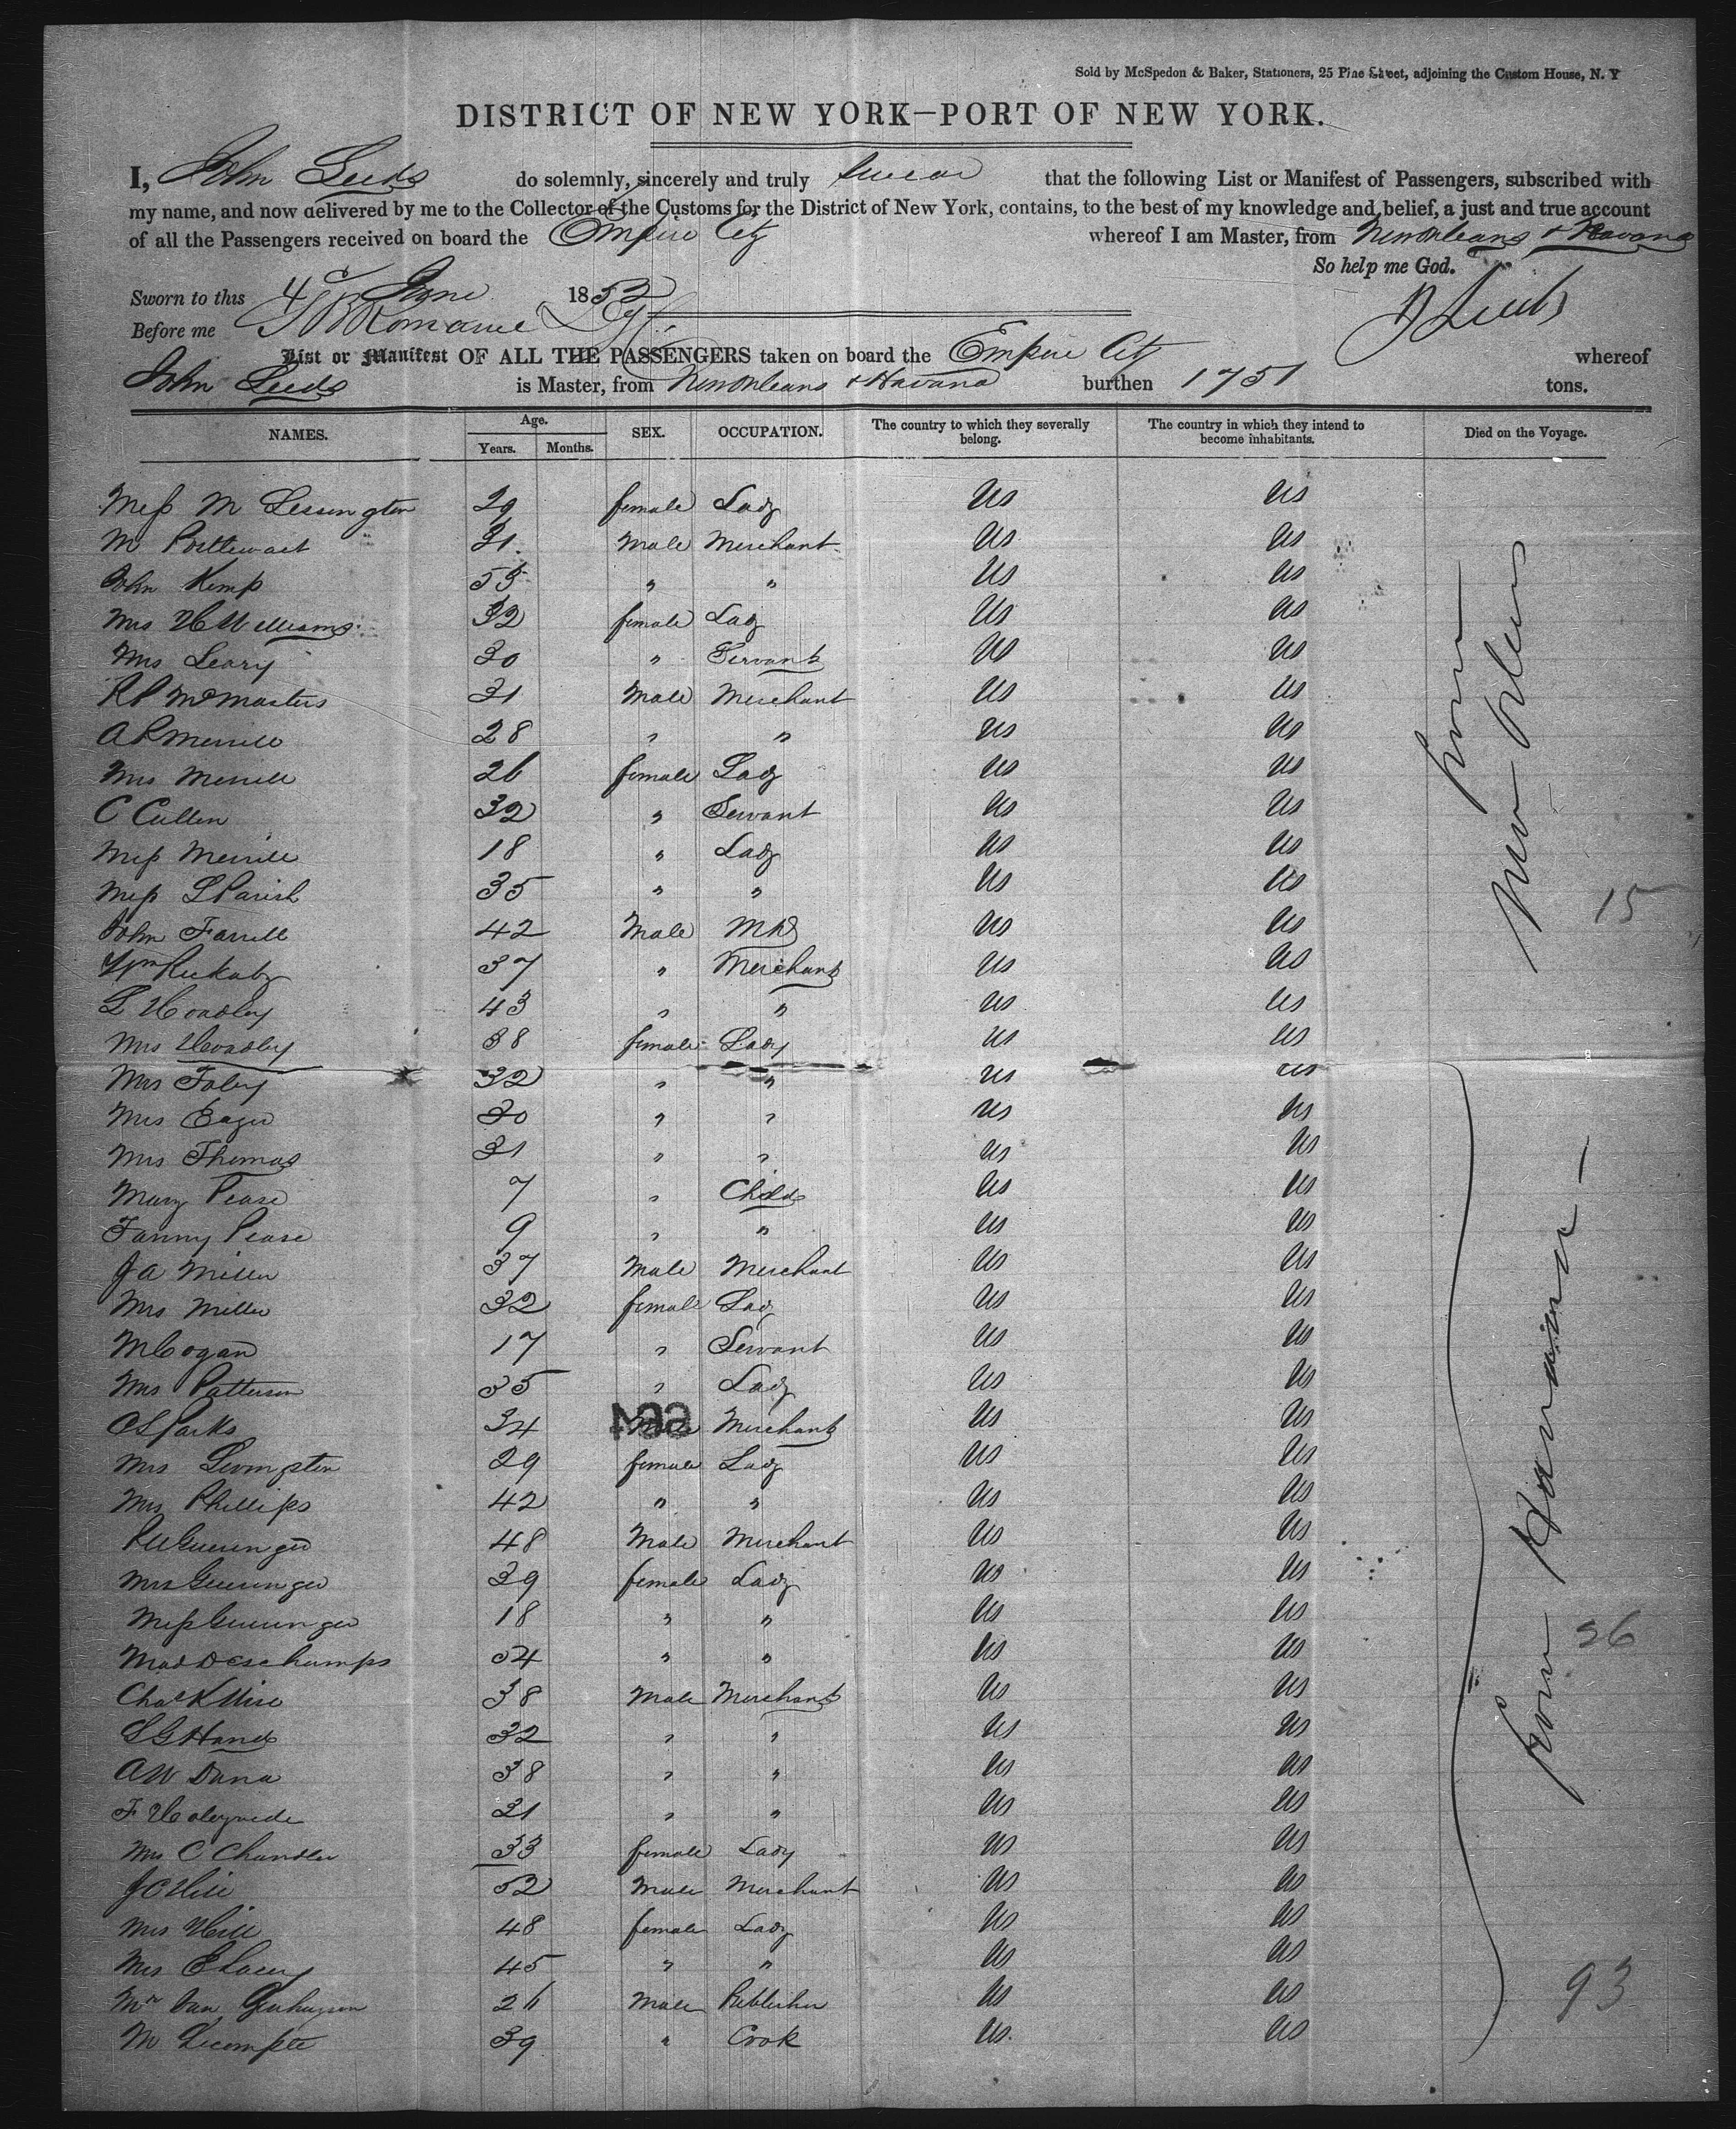 Sold by McSpedon & Baker, Stationers, 25 Pine Street, adjoining the Custom House, N. Y
DISTRICT OF NEW YORK—PORT OF NEW YORK.
I, John Leeds do solemnly, sincerely and truly swear that the following List or Manifest of Passengers, subscribed with
my name, and now delivered by me to the Collector of the Customs for the District of New York, contains, to the best of my knowledge and belief, a just and true account
of all the Passengers received on board the Empire City whereof I am Master, from New Orleans & Havana
So help me God.
Sworn to this 4 June 1853
Before me J B Romaine J Leeds
List or Manifest OF ALL THE PASSENGERS taken on board the Empire City whereof
John Leeds is Master, from New Orleans & Havana burthen 1751 tons.
NAMES. Age. Years. Months. SEX. OCCUPATION. The country to which they severally belong. The country in which they intend to become inhabitants. Died on the Voyage.
Miss M 29 female Lady US US
M Postlewait 31 Male Merchant US US
John Kemp 55 " " US US
Mrs H Williams 32 female Lady US US
Mrs Leary 30 " Servant US US
R P McMasters 31 Male Merchant US US
A P Merrill 28 " " US US
Mrs Merrill 26 female Lady US US
C Cullen 32 " Servant US US
Miss Merrill 18 " Lady US US
Miss L Parish 35 " " US US
John Farrell 42 Male MD US US
Wm Rickaby 37 " Merchant US US
L Hoadley 43 " " US US
Mrs Hoadley 38 female Lady US US
from New Orleans 15
Mrs Foley 32 " " US US
Mrs Eager 30 " " US US
Mrs Thomas 31 " " US US
Mary Pease 7 " Child US US
Fanny Pease 9 " " US US
J A Miller 37 Male Merchant US US
Mrs Miller 32 female Lady US US
M Cogan 17 " Servant US US
Mrs Patterson 35 " Lady US US
C S Parks 34 Male Merchant US US
Mrs Livingston 29 female Lady US US
Mrs Phillips 42 " " US US
48 Male Merchant US US
Mrs 39 female Lady US US
Miss 18 " " US US
Mad Deschamps 34 " " US US
Chas K 38 Male Merchant US US
S G Hand 32 " " US US
A W Dana 38 " " US US
F 31 " " US US
Mrs C Chandler 33 female Lady US US
J C Hill 52 Male Merchant US US
Mrs Hill 48 female Lady US US
Mrs E Lacey 45 " " US US
Mr Van 26 Male Publisher US US
M Lecompte 39 " Cook US US
from Havana
26
93